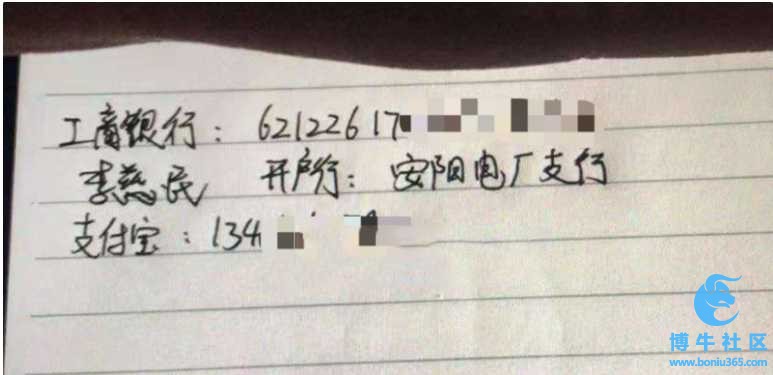 工商银行：62122617
李慈民 开户行：安阳电厂支行
支付宝：134
博牛社区
www.boniu365.com